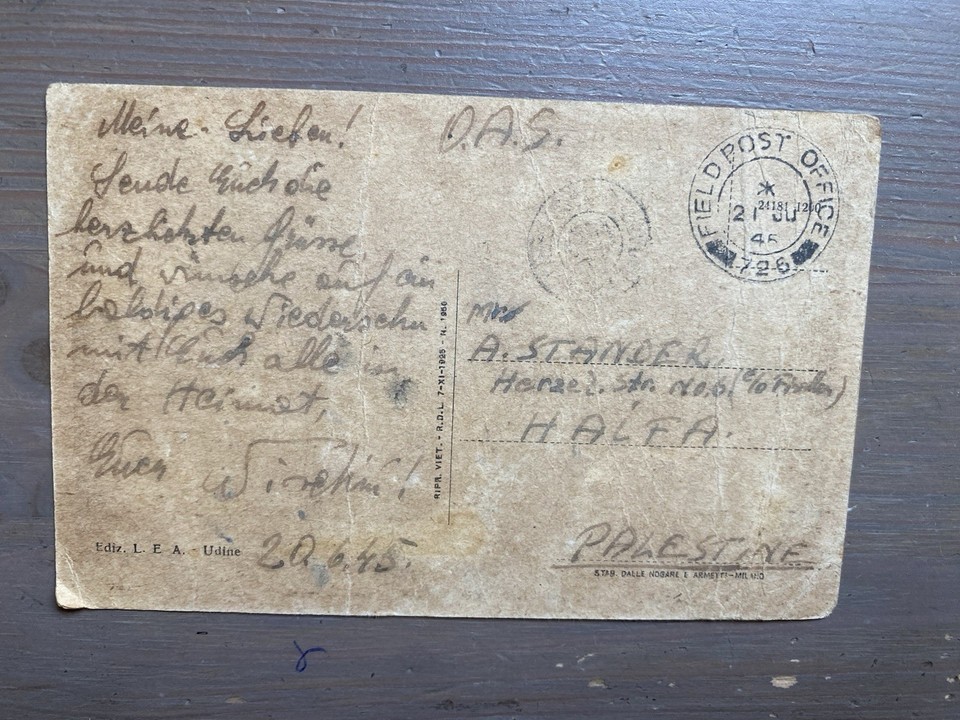 Meine Lieben!
Sende Euch die
herzlichsten Grüsse
und wünsche auf ein
baldiges Wiedersehn
mit Euch alle in
der Heimat,
Euer
Ediz. L. E A. - Udine
20.6.45.
RIPR. VIET. - R.D.L. 7-XI-1925 - N. 1950
O.A.S.
FIELD POST OFFICE
21 JU
45
726
A. STANDER,
Herzel. Str. No.6 (c/o
HAIFA.
PALESTINE
STAB. DALLE NOGARE E ARMETTI - MILANO